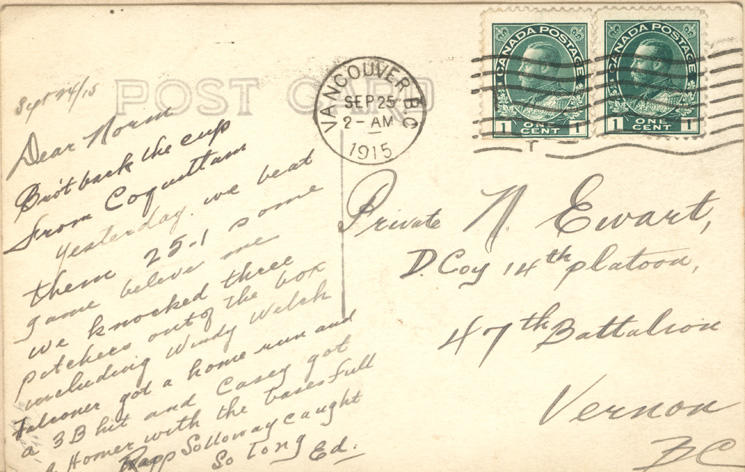 POST CARD
Sept 24/15
Dear Norm
Bro't back the cup
from Coquitlam
yesterday. we beat
them 25-1 some
game beleve me
we knocked three
pitchers out of the box
including Windy Welch
Falconer got a home run and
a 3B hit and Casey got
a Homer with the bases full
Rapp Solloway caught
So long Ed.
VANCOUVER B.C.
SEP 25
2 - AM
1915
CANADA POSTAGE
1 ONE CENT 1
CANADA POSTAGE
1 ONE CENT 1
Private N. Ewart,
D. Coy 14th platoon,
47th Battalion
Vernon
BC